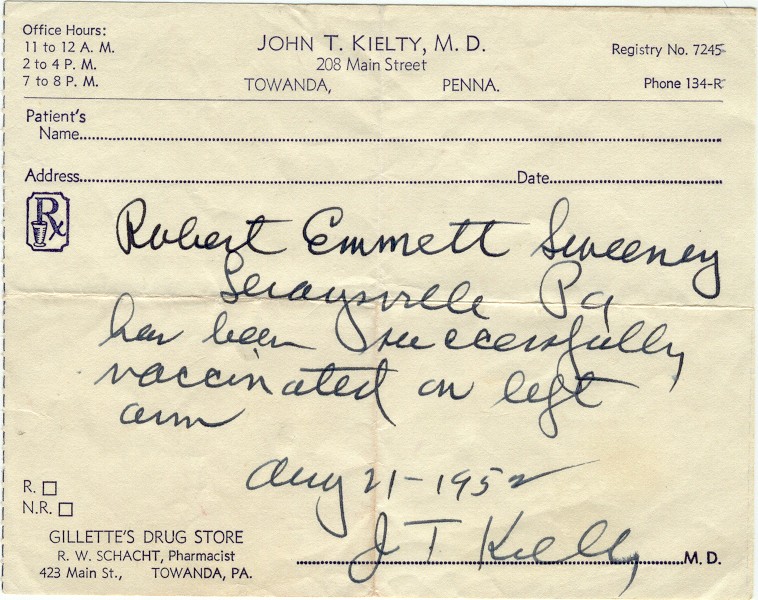 Office Hours:
11 to 12 A. M.
2 to 4 P. M.
7 to 8 P. M.
JOHN T. KIELTY, M. D.
208 Main Street
TOWANDA, PENNA.
Registry No. 7245
Phone 134-R
Patient's
Name
Address Date
Rx
Robert Emmett Sweeney
Leraysville Pa
has been successfully
vaccinated on left
arm
Aug 21-1952
J T Kielty M. D.
R.
N.R.
GILLETTE'S DRUG STORE
R. W. SCHACHT, Pharmacist
423 Main St., TOWANDA, PA.